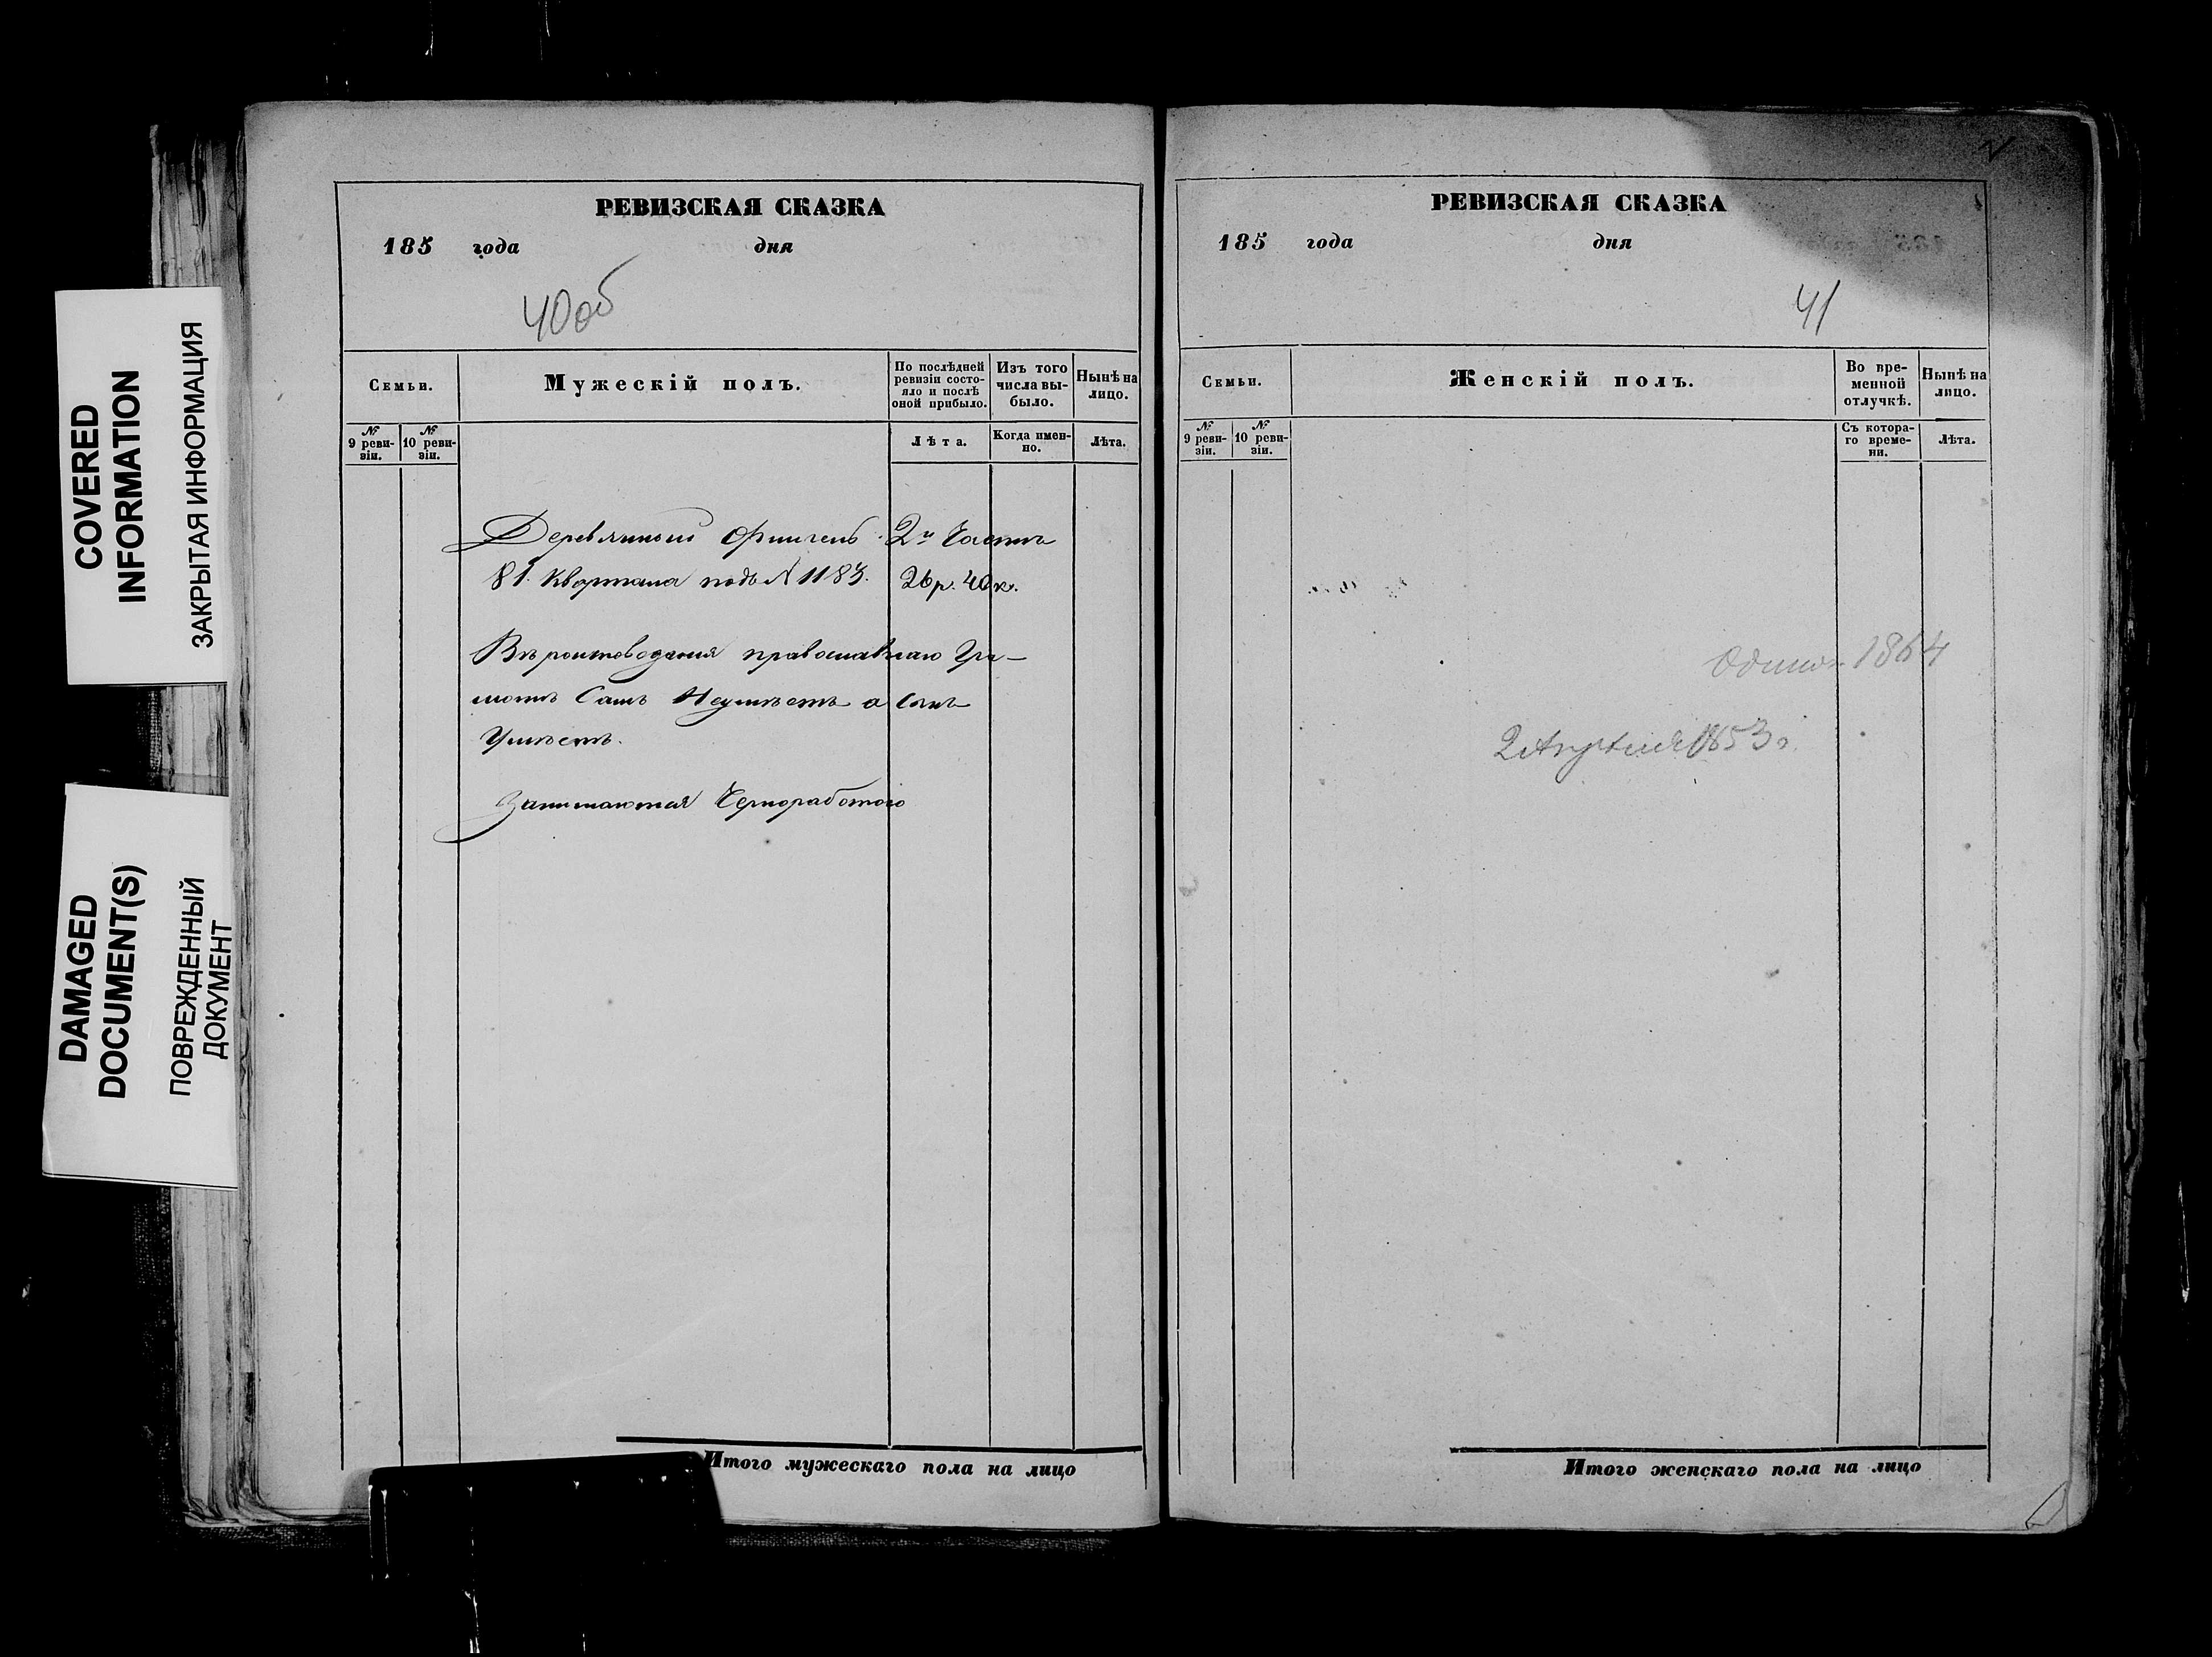 COVERED
INFORMATION
ЗАКРЫТАЯ ИНФОРМАЦИЯ
DAMAGED
DOCUMENT(S)
ПОВРЕЖДЕННЫЙ
ДОКУМЕНТ
РЕВИЗСКАЯ СКАЗКА
185 года дня
40об
Семьи.
Мужескій полъ.
По послѣдней
ревизіи состо-
яло и послѣ
оной прибыло.
Изъ того
числа вы-
было.
Нынѣ на
лицо.
№
9 реви-
зіи.
№
10 реви-
зіи.
Лѣта.
Когда имен-
но.
Лѣта.
Деревянный Флигель 2й Части
81. Квартала подъ № 1183. 26р. 40к.
Вѣроисповѣданія православнаго Гра-
мотѣ Самъ Неумѣетъ а Сынъ
Умѣетъ.
Занимаются Черноработою
Итого мужескаго пола на лицо
РЕВИЗСКАЯ СКАЗКА
185 года дня
41
Семьи.
Женскій полъ.
Во вре-
менной
отлучкѣ.
Нынѣ на
лицо.
№
9 реви-
зіи.
№
10 реви-
зіи.
Съ котора-
го време-
ни.
Лѣта.
1864
2 Апреля 1853 г.
Итого женскаго пола на лицо